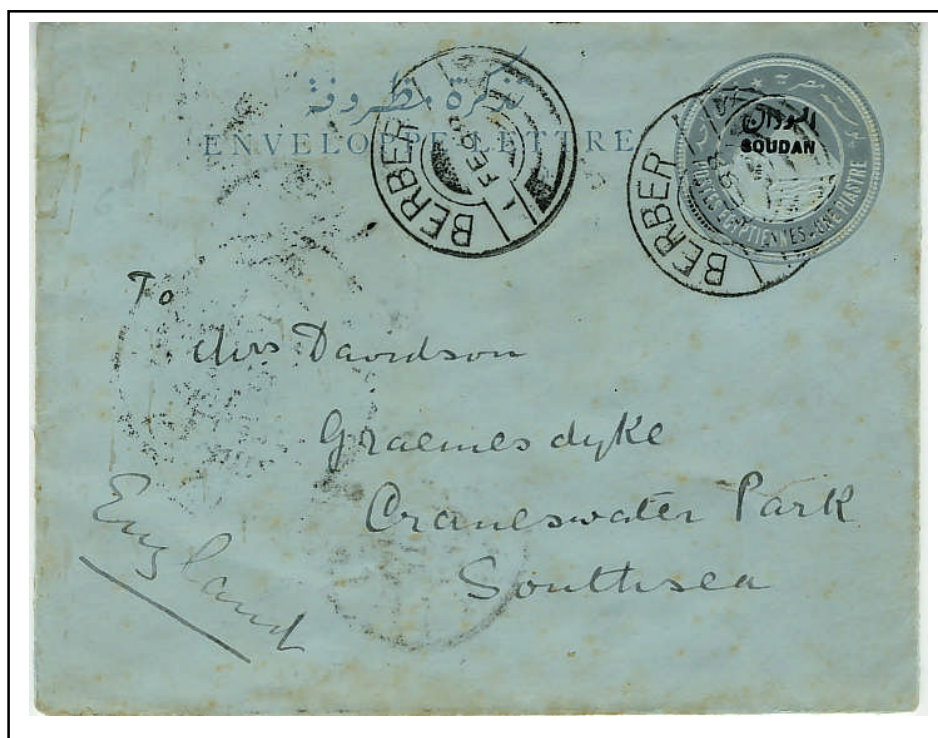 تذكرة مظروفة
ENVELOPPE LETTRE
BERBER
1
FE 98
BERBER
98
السودان
SOUDAN
POSTES EGYPTIENNES_UNE PIASTRE
To
Mrs Davidson
Graemesdyke
Craneswater Park
Southsea
England